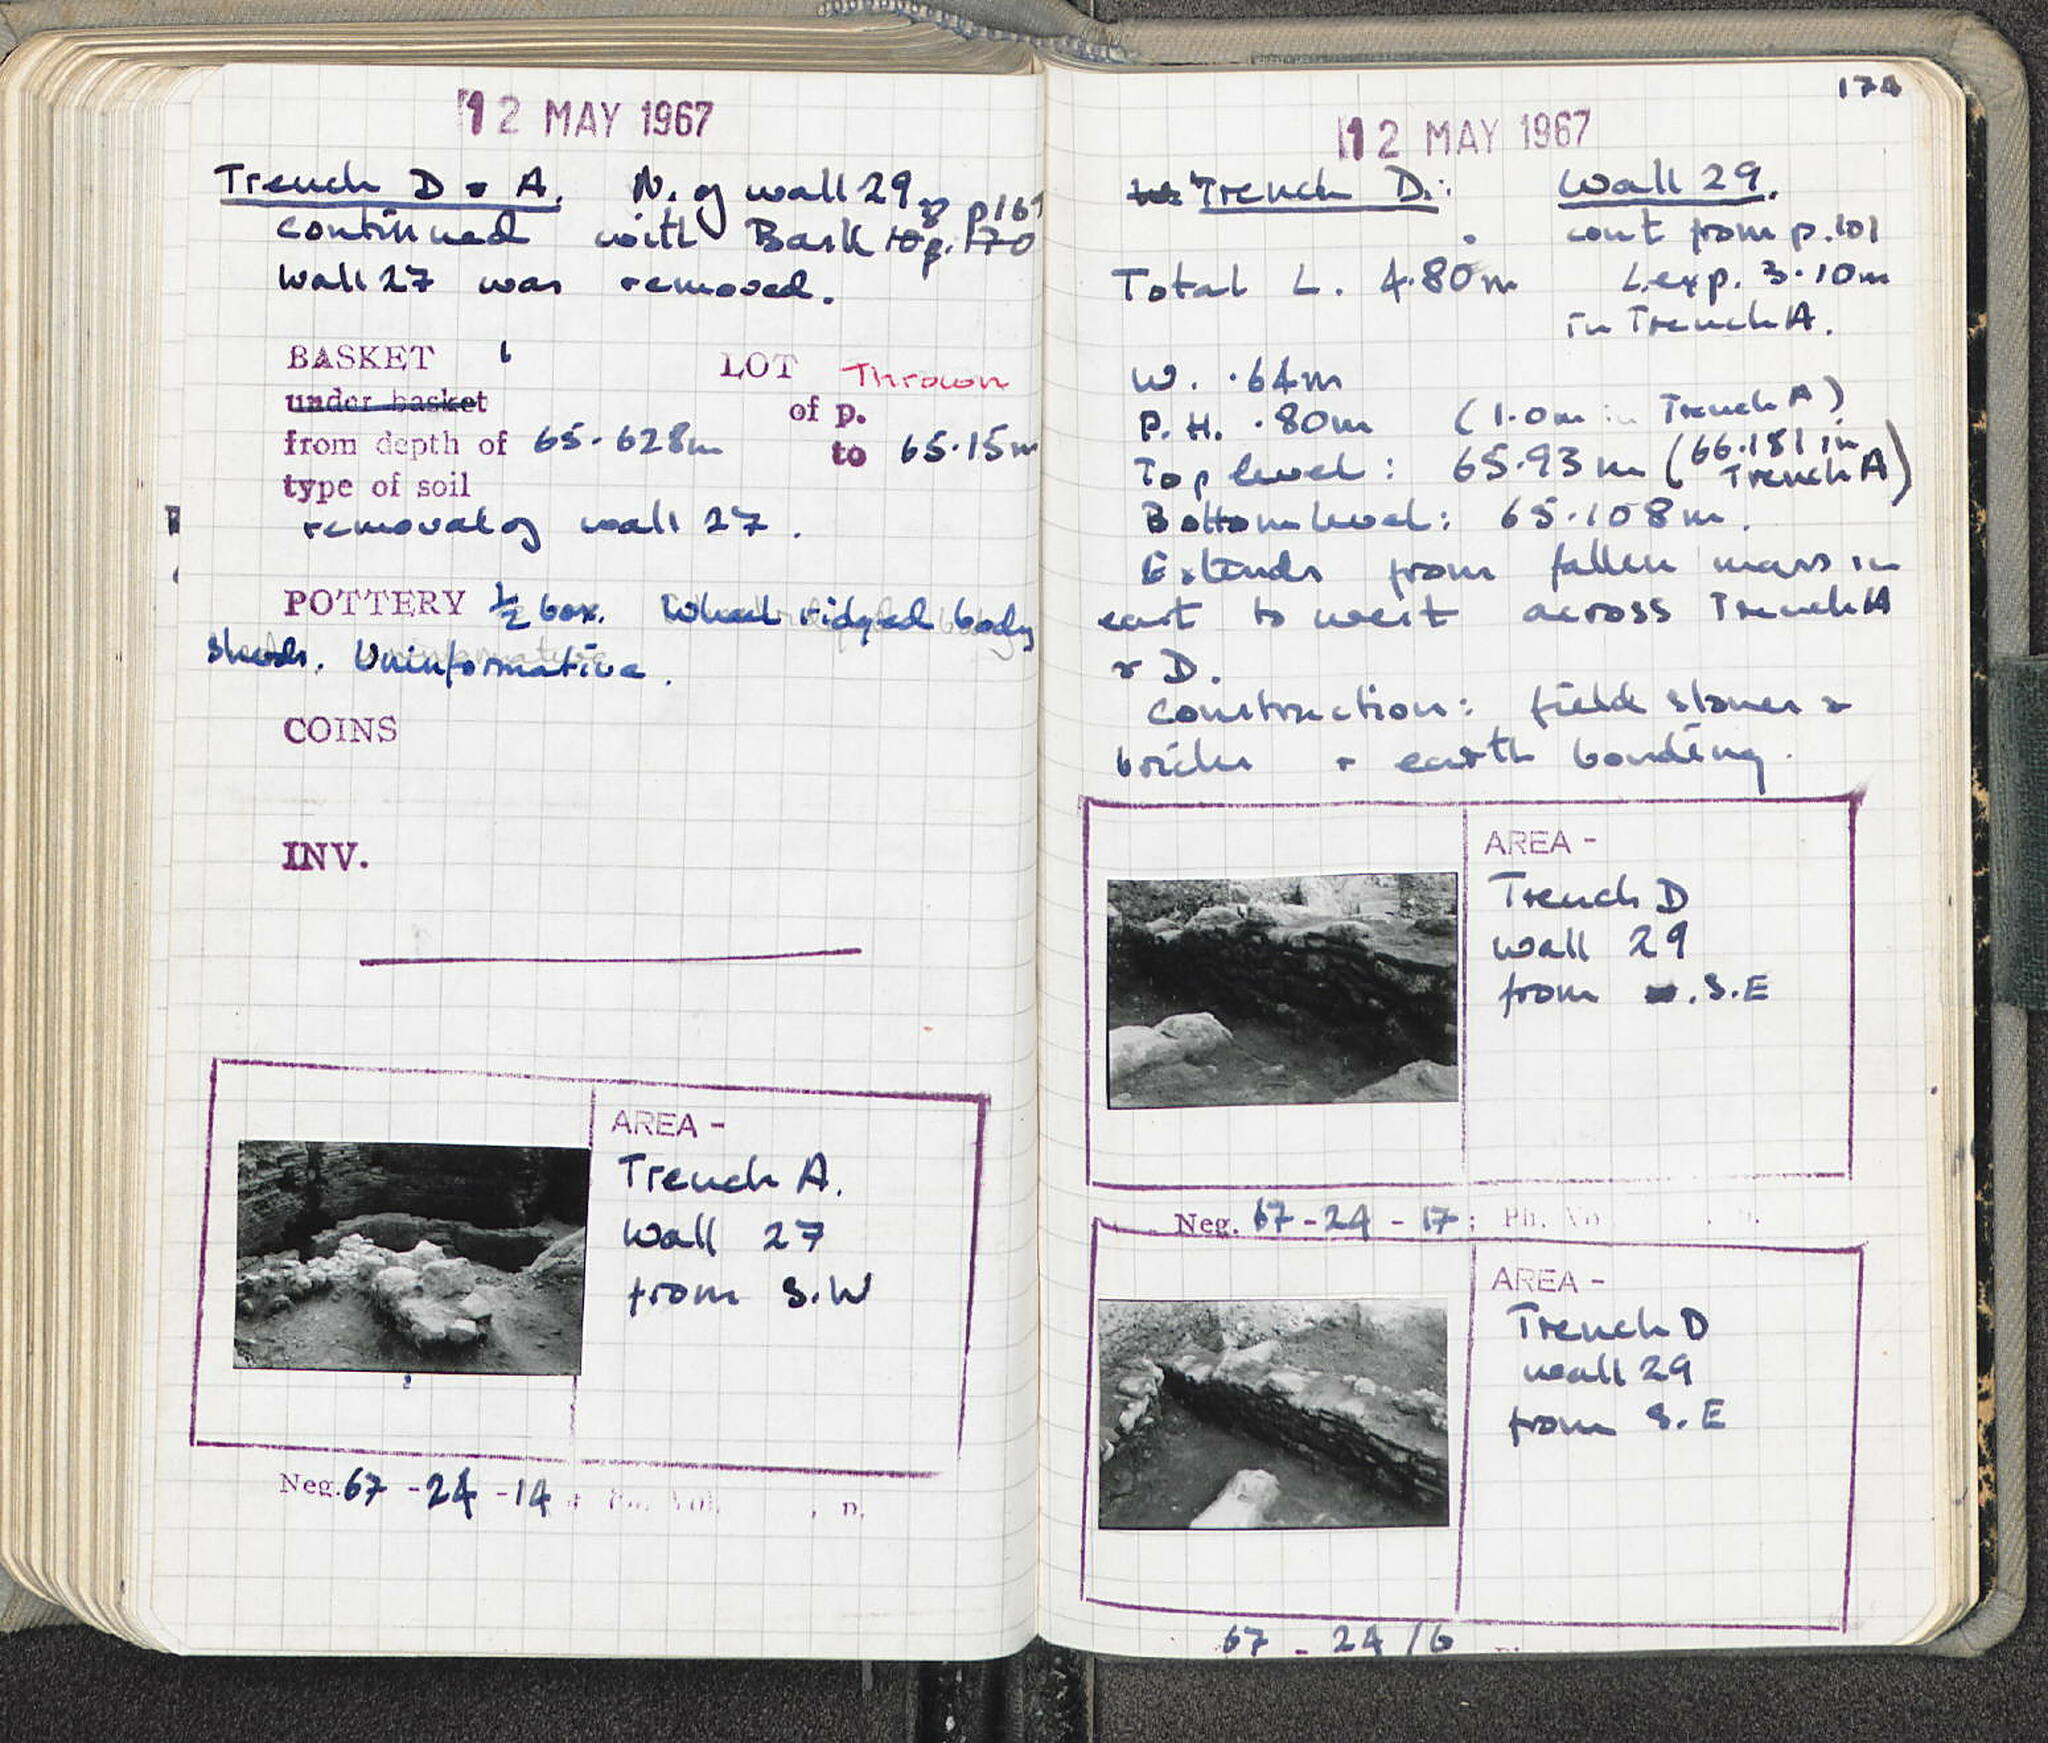 12 MAY 1967
Trench D & A. N. of wall 29
continued with Bask 10 p. 170
Wall 27 was removed.
BASKET 1 LOT Thrown
under basket of p.
from depth of 65.628m to 65.15m
type of soil
removal of wall 27.
POTTERY ½ box. Wheel ridged body
sherds. Uninformative.
COINS
INV.
AREA -
Trench A.
Wall 27
from S.W
Neg. 67 - 24 - 14 ; Ph. Vol. , n.
174
12 MAY 1967
Trench D: Wall 29.
cont from p. 101
Total L. 4.80m L. exp. 3.10m
in Trench A.
W. .64m
P.H. .80m (1.0m in Trench A)
Top level: 65.93m (66.181 in
Trench A)
Bottom level: 65.108m.
Extends from fallen mass in
east to west across Trench A
& D.
Construction: field stones &
bricks & earth bonding.
AREA -
Trench D
wall 29
from S.E
Neg. 67 - 24 - 17 ; Ph. Vo n.
AREA -
Trench D
wall 29
from S.E
67 - 24 / 6